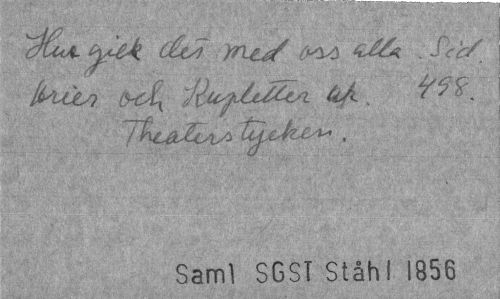 Hur gick det med oss alla. Sid.
Arier och Kupletter ur. 498.
Theaterstycken.
Saml SGST Ståhl 1856